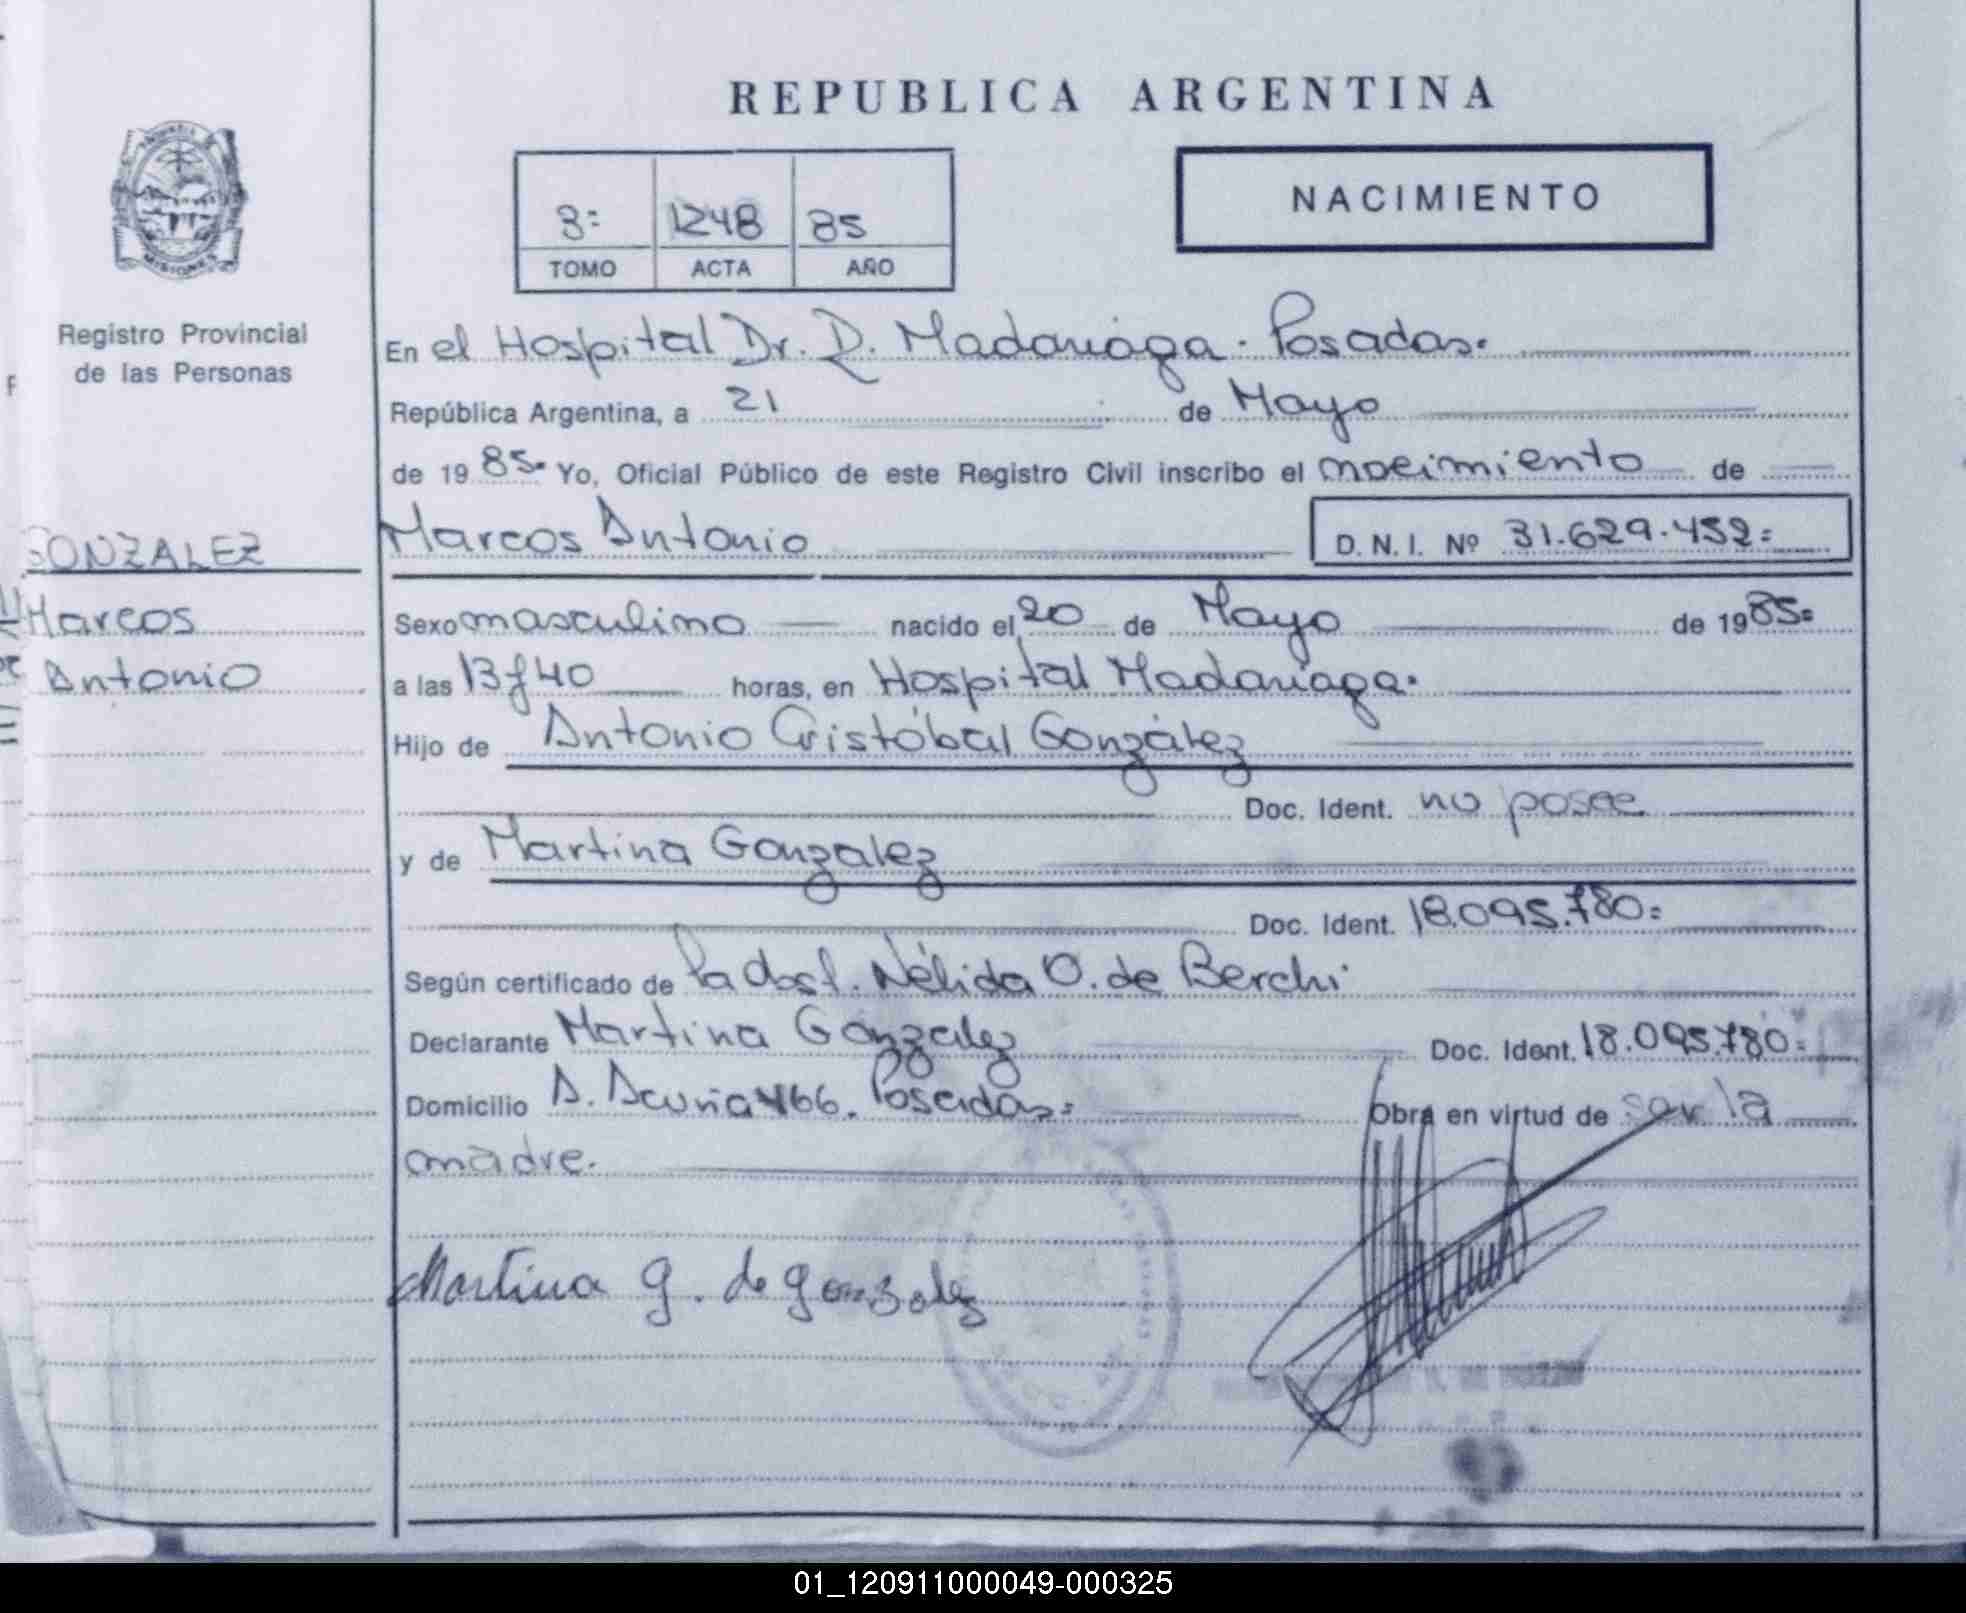 REPUBLICA ARGENTINA
NACIMIENTO
3= 1248 85
TOMO ACTA AÑO
MISIONES
Registro Provincial
de las Personas
GONZALEZ
Marcos
Antonio
En el Hospital Dr. R. Madariaga. Posadas.
República Argentina, a 21 de Mayo
de 1985. Yo, Oficial Público de este Registro Civil inscribo el nacimiento de
Marcos Antonio D.N.I. Nº 31.629.452=
Sexo masculino nacido el 20 de Mayo de 1985=
a las 13 y 40 horas, en Hospital Madariaga.
Hijo de Antonio Cristóbal González
Doc. Ident. no posee
y de Martina Gonzalez
Doc. Ident. 18.095.780=
Según certificado de la obst. Nélida O. de Berchi
Declarante Martina Gonzalez Doc. Ident. 18.095.780=
Domicilio A. Acuña 466. Posadas= Obra en virtud de ser la
madre.
Martina G. de Gonzalez
01_120911000049-000325